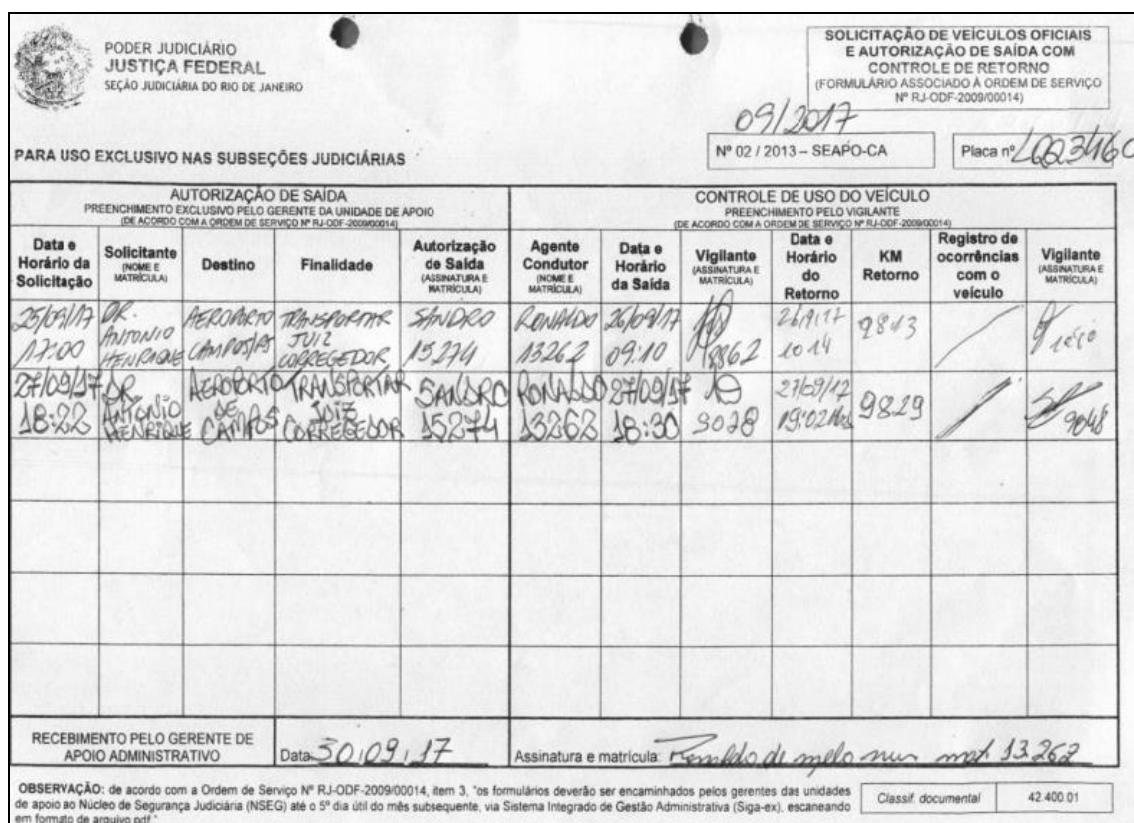 PODER JUDICIÁRIO
JUSTIÇA FEDERAL
SEÇÃO JUDICIÁRIA DO RIO DE JANEIRO
SOLICITAÇÃO DE VEÍCULOS OFICIAIS
E AUTORIZAÇÃO DE SAÍDA COM
CONTROLE DE RETORNO
(FORMULÁRIO ASSOCIADO À ORDEM DE SERVIÇO
Nº RJ-ODF-2009/00014)
09/2017
PARA USO EXCLUSIVO NAS SUBSEÇÕES JUDICIÁRIAS
Nº 02 / 2013 – SEAPO-CA
Placa nº LQQ3460
AUTORIZAÇÃO DE SAÍDA
PREENCHIMENTO EXCLUSIVO PELO GERENTE DA UNIDADE DE APOIO
(DE ACORDO COM A ORDEM DE SERVIÇO Nº RJ-ODF-2009/00014)
CONTROLE DE USO DO VEÍCULO
PREENCHIMENTO PELO VIGILANTE
(DE ACORDO COM A ORDEM DE SERVIÇO Nº RJ-ODF-2009/00014)
Data e Horário da Solicitação
Solicitante (NOME E MATRÍCULA)
Destino
Finalidade
Autorização de Saída (ASSINATURA E MATRÍCULA)
Agente Condutor (NOME E MATRÍCULA)
Data e Horário da Saída
Vigilante (ASSINATURA E MATRÍCULA)
Data e Horário do Retorno
KM Retorno
Registro de ocorrências com o veículo
Vigilante (ASSINATURA E MATRÍCULA)
25/09/17 17:00
DR. ANTONIO HENRIQUE
AEROPORTO CAMPOS/RJ
TRANSPORTAR JUIZ CORREGEDOR
SANDRO 15.274
RONALDO 13262
26/09/17 09:10
8862
26/9/17 10 14
9813
27/09/17 18:22
DR ANTONIO HENRIQUE
AEROPORTO DE CAMPOS
TRANSPORTAR JUIZ CORREGEDOR
SANDRO 15274
RONALDO 13262
27/09/17 18:30
9028
27/09/17 19:02
9829
9048
RECEBIMENTO PELO GERENTE DE
APOIO ADMINISTRATIVO
Data: 30/09/17
Assinatura e matrícula: Ronaldo de melo mat 13.262
OBSERVAÇÃO: de acordo com a Ordem de Serviço Nº RJ-ODF-2009/00014, item 3, "os formulários deverão ser encaminhados pelos gerentes das unidades
de apoio ao Núcleo de Segurança Judiciária (NSEG) até o 5º dia útil do mês subsequente, via Sistema Integrado de Gestão Administrativa (Siga-ex), escaneando
em formato de arquivo pdf."
Classif. documental
42.400.01